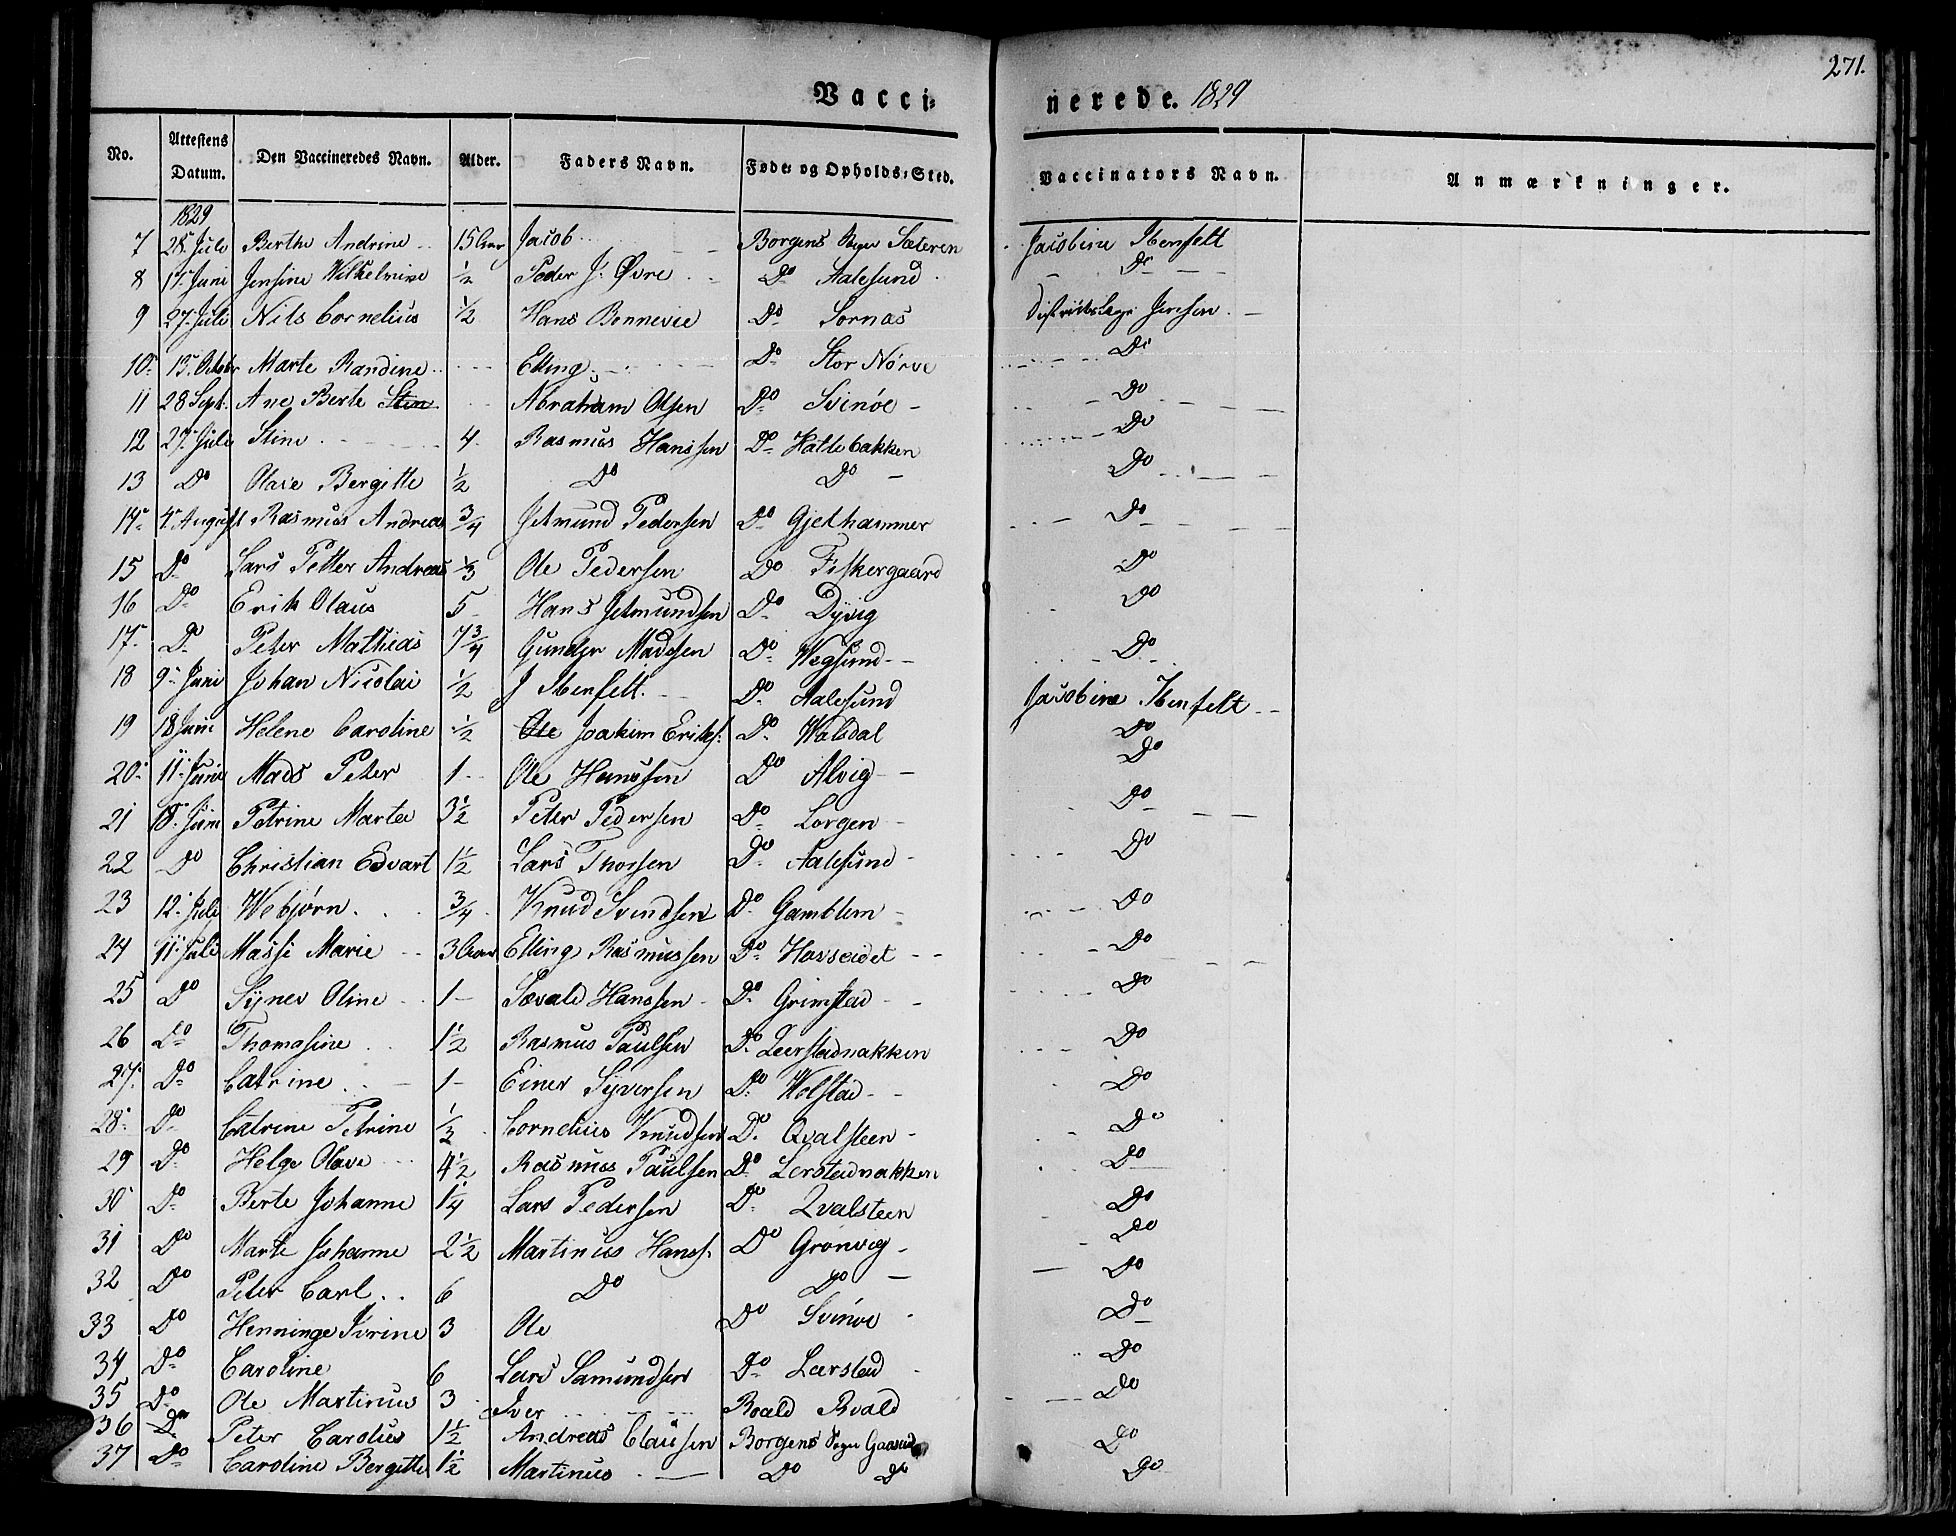 271.
Vacci-nerede. 1829
No. | Attestens Datum. | Den Vaccineredes Navn. | Alder. | Faders Navn. | Føde- og Opholds-Sted. | Vaccinators Navn. | Anmærkninger.
1829
7 | 28 Juli | Berthe Andrine | 15 Aar | Jacob | Borgens Sogn Sæteren | Jacobine Ibenfelt
8 | 15 Juni | Jensine Wilhelmine | 1/2 | Peder J. Øvre | Do Aalesund | Do
9 | 27 Juli | Nils Cornelius | 1/2 | Hans Bennevie | Do Sornas | Jensen
10 | 13 October | Marte Randine | Elling | Do Stor Nørve | Do
11 | 28 Sept. | Ane Berte Stin | Abraham Olsen | Do Svinøe | Do
12 | 27 Juli | Stine | 4 | Rasmus Hanssen | Do Hattebakken | Do
13 | Do | Olave Bergitte | 1/2 | Do | Do | Do
14 | 4 August | Rasmus Andreas | 3/4 | Jetmund Pedersen | Do Gjethammer | Do
15 | Do | Lars Petter Andreas | 1/3 | Ole Pedersen | Do Fiskergaard | Do
16 | Do | Erik Olaus | 5 | Hans Jetmundsen | Do Dyvig | Do
17 | Do | Peter Mathias | 7 3/4 | Gunder Madsen | Do Wegsund | Do
18 | 9 Juni | Johan Nicolai | 1/2 | J Ibenfelt | Do Aalesund | Jacobine Ibenfelt
19 | 18 Juni | Helene Caroline | 1/2 | Ole Joakim Eriks. | Do Walsdal | Do
20 | 11 Juni | Mads Peter | 1 | Ole Hanssen | Do Alvig | Do
21 | 18 Juni | Petrine Marta | 3 1/2 | Peter Pedersen | Do Lorgen | Do
22 | Do | Christian Edvart | 1 1/2 | Lars Thorsen | Do Aalesund | Do
23 | 12 Juli | Webjørn | 3/4 | Knud Svendsen | Do Gamblem | Do
24 | 11 Juli | Massi Marie | 3 Aar | Elling Rasmussen | Do Havseidet | Do
25 | Do | Synev Oline | 1 | Sævald Hanssen | Do Grimstad | Do
26 | Do | Thomasine | 1 1/2 | Rasmus Paulsen | Do Leerstadnakken | Do
27 | Do | Catrine | 1 | Einer Syversen | Do Wolstad | Do
28 | Do | Catrine Petrine | 1/2 | Cornelius Knudsen | Do Qvalsteen | Do
29 | Do | Helge Olave | 4 1/2 | Rasmus Paulsen | Do Lerstadnakken | Do
30 | Do | Berte Johanne | 1/4 | Lars Pedersen | Do Qvalsteen | Do
31 | Do | Marte Johanne | 2 1/2 | Martinus Hanss. | Do Grønvig | Do
32 | Do | Peter Carl | 6 | Do | Do | Do
33 | Do | Henninge Ivrine | 3 | Ole | Do Svinøe | Do
34 | Do | Caroline | 6 | Lars Samundsen | Do Lærstad | Do
35 | Do | Ole Martinus | 3 | Iver | Roald Roald | Do
36 | Do | Peter Carolus | 1 1/2 | Andreas Clausen | Borgens Sogn | Do
37 | Do | Caroline Bergitte | 1 1/2 | Martinus | Do Do | Do